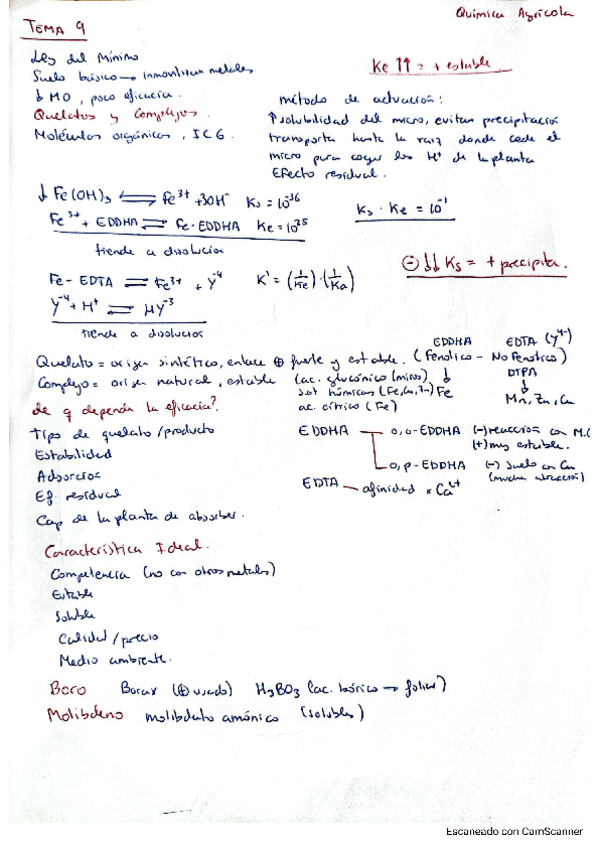 Química Agrícola
TEMA 9
Ley del mínimo
Suelo básico → inmovilizan metales
↓ MO, poca eficacia.
Quelatos y Complejos.
Moléculas orgánicas, IC6.
Ke ↑↑ = + estable
método de actuación:
↑ solubilidad del micro, evitan precipitación
transporta hasta la raíz donde cede el
micro para coger los H⁺ de la planta
Efecto residual.
↓ Fe(OH)₃ ⇌ Fe³⁺ + 3OH⁻ Ks = 10⁻³⁶
Fe³⁺ + EDDHA ⇌ Fe-EDDHA Ke = 10³⁵
tiende a disolución
Ks · Ke = 10⁻¹
Fe-EDTA ⇌ Fe³⁺ + Y⁻⁴ K' = (1/Ke)·(1/Ka)
Y⁻⁴ + H⁺ ⇌ HY⁻³
tiende a disolución
⊖ ↓↓ Ks = + precipita.
Quelato = origen sintético, enlace ⊕ fuerte y estable. (Fenólico - No Fenólico)
EDDHA EDTA (Y⁴⁻)
DTPA
↓
Mn, Zn, Cu
Complejo = origen natural, estable (ac. glucónico (micros) ↓
sust húmicas (Fe, Cu, Zn) Fe
ac. cítrico (Fe)
de q depende la eficacia?
Tipo de quelato/producto
Estabilidad
Adsorción
Ef. residual
Cap de la planta de absorber.
EDDHA
o,o-EDDHA (-) reacción con M.O
(+) muy estable.
o,p-EDDHA (-) suelo con Cu
(mucha atracción)
EDTA afinidad x Ca²⁺
Característica Ideal.
Competencia (no con otros metales)
Estable
Soluble
Calidad/precio
Medio ambiente.
Boro Borax (⊕ usado) H₃BO₃ (ac. bórico → foliar)
Molibdeno molibdato amónico (solubles)
Escaneado con CamScanner